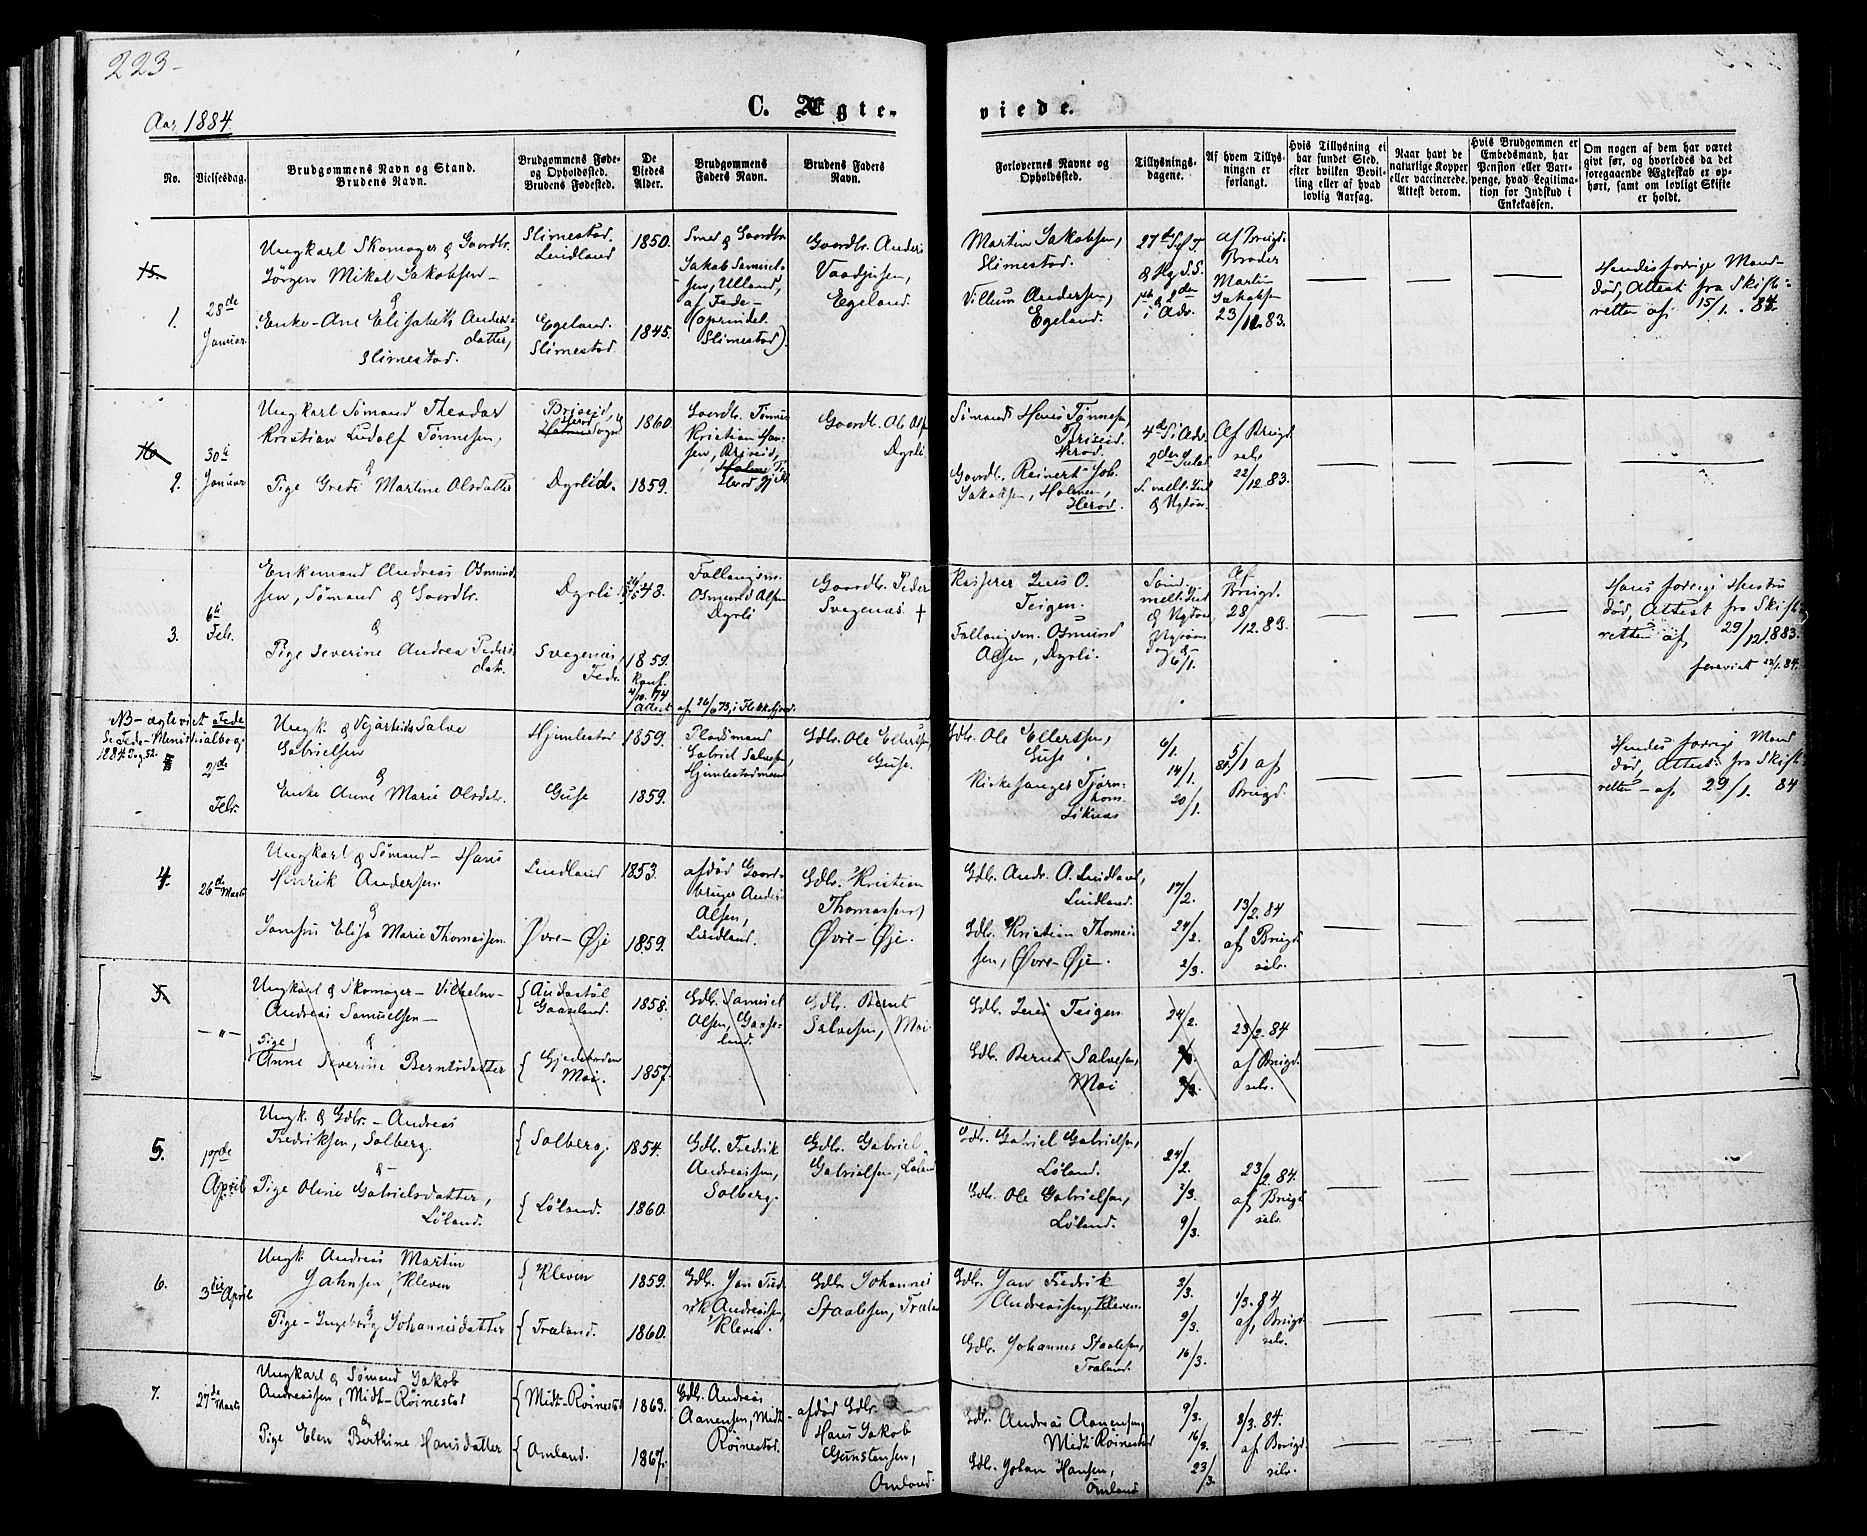 223-
Aar 1884.
C. Ægte-
viede.
No.
Vielsesdag.
Brudgommens Navn og Stand.
Brudens Navn.
Brudgommens Føde-
og Opholdssted.
Brudens Fødested.
De
Viedes
Alder.
Brudgommens
Faders Navn.
Brudens Faders
Navn.
Forlovernes Navne og
Opholdssted.
Tillysnings-
dagene.
Af hvem Tillys-
ningen er
forlangt.
Hvis Tillysning ei
har fundet Sted,
efter hvilken Bevil-
ling eller af hvad
lovlig Aarsag.
Naar havt de
naturlige Kopper
eller vaccinerede.
Attest derom.
Hvis Brudgommen er
Embedsmand, har
Pension eller Vart-
penge, hvad Legitima-
tion for Indskud i
Enkekassen.
Om nogen af dem har været
givt før, og hvorledes da det
foregaaende Ægteskab er op-
hørt, samt om lovligt Skifte
er holdt.
15.
1.
28de
Januar
Ungkarl Skomager & Gaardbr.
Jørgen Mikal Jakobsen
&
Enke-Ane Elisabeth Anders-
datter,
Slimestad.
Slimestad.
Lindland
Egeland.
Slimestad.
1850.
1845.
Smed & Gaardbr.
Jakob Samuel-
sen, Ulland,
af Fede-
(oprindel.
Slimestad).
Gaardbr. Anders
Vaadjusen,
Egeland.
Martin Jakobsen,
Slimestad.
Villum Andersen,
Egeland.
27de S. e. T.
& Hg S. S.
1ste & 2den
i Adv.
af Brudg.
Broder
Martin
Jakobsen
23/11.83.
Hendes forrige Mand
død, Attest fra Skift-
retten af 15/1. 84.
16
2.
30te
Januar
Ungkarl Sømand Theodor
Kristian Ludolf Tønnesen,
&
Pige Grete Martine Olsdatter
Briseid,
Dyrlid.
1860.
1859.
Gaardb. Tønnes
Kristian Han-
sen, Briseid,
Gaardbr. Ole Als
Dyrli.
Sømand Hans Tønnesen
Briseid
Herod.
Gaardb. Reinert Joh.
Jakobsen, Holmen,
Herod.
4de S. i Adv.
2den Juled.
S. mell. Jul
& Nytaar.
Af Brudg.
selv.
22/12 83.
3.
6te
Febr.
Enkemand Andreas Osmund-
sen, Sømand & Gaardbr.
&
Pige Severine Andrea Peders-
datr.
Dyrli
Svegenæs,
Fede.
48.
1859.
Konf.
4/10. 74
Osmund Alsen
Dyrli
af 26/6 73, i Flekkefjord.
Gaardb. Peder
Svegenæs †
Kasserer Jens O.
Teigen.
Osmund
Alsen, Dyrli.
Sønd.
mell. Jul
& Nytaar
Nytaars
dag &
6/1.
af
Brudg.
28/12.83.
Hans forrige Hustru
død, Attest fra Skift-
retten af 29/12 1883.
forevist 12/1. 84.
NB - ægteviet Fede
Se Fede-Ministerialbog
1884
2de
Febr.
Ungk. & Vejarbeids Salve
Gabrielsen
&
Enke Anne Marie Olsdatr.
Hjemlestad
Guse
1859.
1859.
Pladsmand
Gabriel Salvesen,
Gdbr. Ole Ellertsen,
Guse.
Gdbr. Ole Ellertsen,
Guse
Kirkesanger Tjørn-
hom
Liknæs
6/1.
14/1.
20/1.
5/1 af
84.
Brudg.
Hendes forrige Mand
død, Attest fra Skift-
retten - af 29/1. 84
4.
26de Marts
Ungkarl & Sømand - Hans
Henrik Andersen.
&
Jomfru Elisa Marie Thomassen.
Lindland
Øvre-Øje
1853.
1859.
afdød Gaard-
bruger Anders
Alsen,
Lindland.
Gdbr. Kristian
Thomassen,
Øvre-Øje.
Gdbr. Andr. A. Lindland,
Lindland.
Gdbr. Kristian Thomas-
sen, Øvre-Øje.
17/2.
24/2.
2/3.
13/2. 84
af Brudg.
selv.
5.
-"-
Ungkarl & Skomager - Vilhelm
Andreas Samuelsen -
&
Pige
Anne Severine Berntsdatter
Gaaseland.
Gjedeboden
Moi.
1858.
1857.
Gdbr. Samuel
Olsen, Gaase-
land.
Gdbr. Bernt
Salvesen, Moi
Gdbr. Jens Teigen
Gdbr. Bernt Salvesen,
Moi
24/2.
23/2. 84
af Brudg.
selv.
5.
17de
April
Ungk. & Gdbr. - Andreas
Fredriksen, Solberg.
&
Pige Oline Gabrielsdatter,
Løland.
Solberg.
Løland.
1854.
1860.
Gdbr. Fredrik
Andreassen,
Solberg.
Gdbr. Gabriel
Gabrielsen, Løland
Gdbr. Gabriel Gabrielsen,
Løland.
Gdbr. Ole Gabrielsen,
Løland.
24/2.
2/3.
9/3.
23/2. 84.
af Brudg.
selv.
6.
3die April
Ungk. Andreas Martin
Jahnsen, Kleven
&
Pige - Ingeborg Johannesdatter
Kleven
Træland.
1859.
1860.
Gdbr. Jan Fred-
rik Andreassen,
Kleven.
Gdbr. Johannes
Staalesen, Træland
Gdbr. Jan Fredrik
Andreassen, Kleven.
Gdbr. Johannes Staalesen,
Træland.
2/3.
9/3.
16/3.
1/3. 84
af Brudg.
selv.
7.
27de Marts
Ungkarl & Sømand Jakob
Andreassen, Midt-Røinestad
&
Pige Elen Berthine Hansdatter
Midt-Røinestad
Omland.
1863.
1867.
Gdbr. Andreas
Aanensen, Midt-
Røinestad.
afdød Gdbr.
Hans Jakob
Gunstensen,
Omland.
Gdbr. Andreas Aanensen,
Midt Røinestad
Gdbr. Johan Hansen,
Omland
9/3.
16/3.
23/3.
8/3. 84.
af Brudg.
selv.